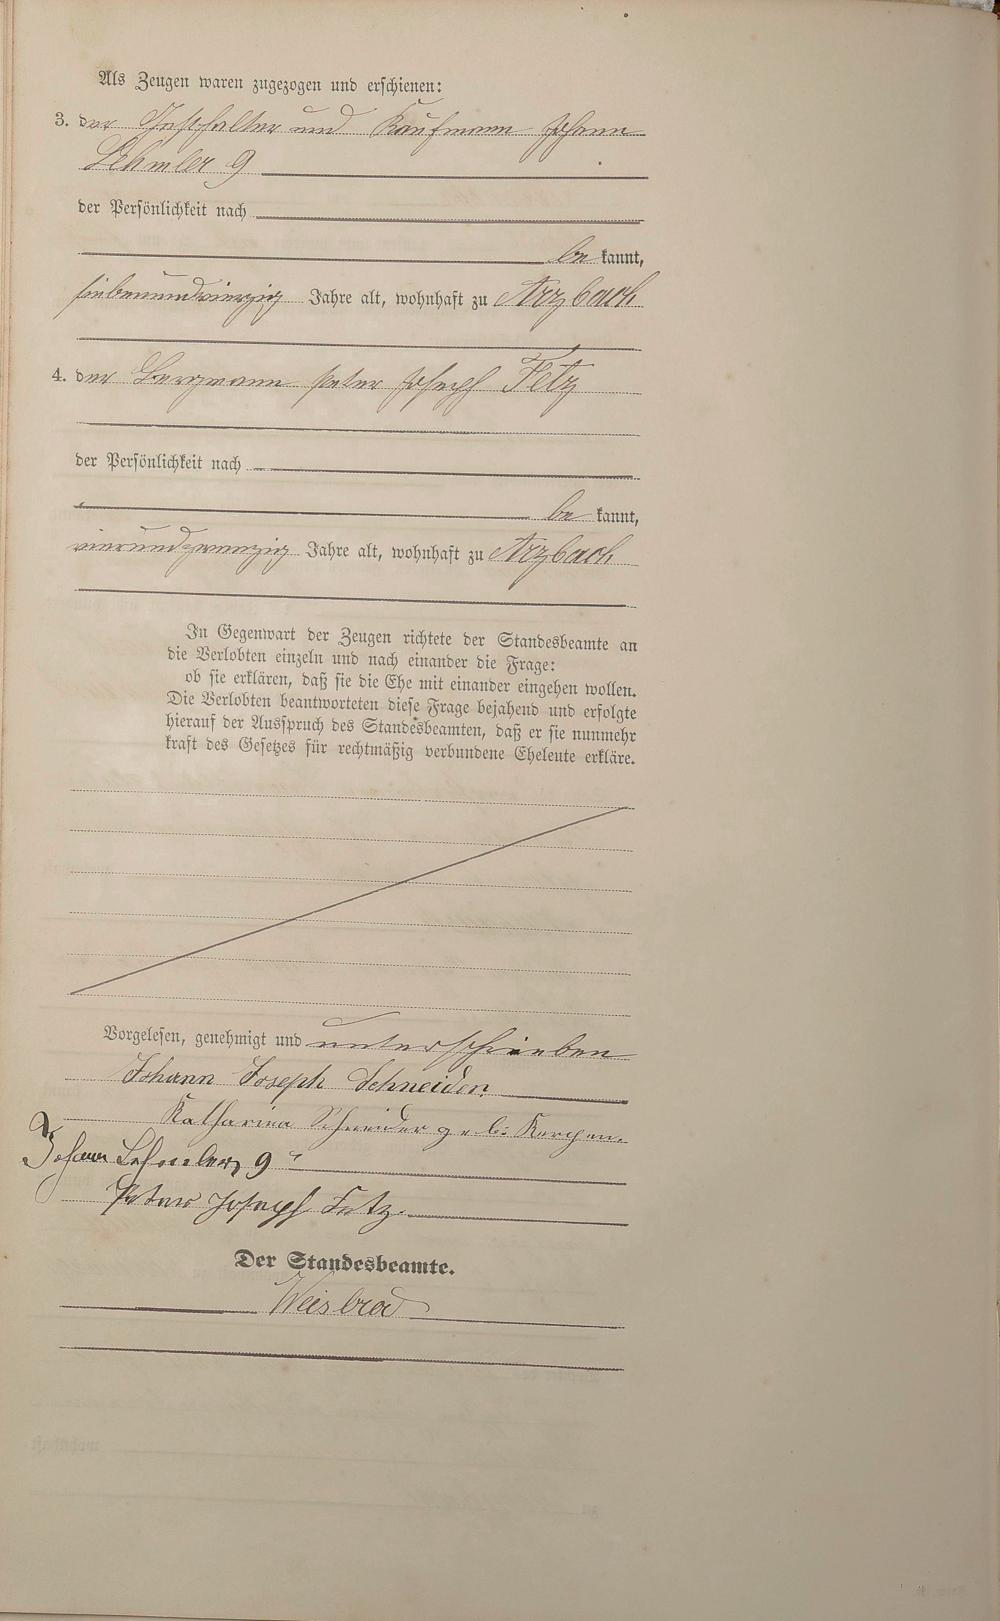 Als Zeugen waren zugezogen und erschienen:
3. der Gasthalter und Kaufmann Johann
Lehmler 9
der Persönlichkeit nach
be kannt,
siebenundvierzig Jahre alt, wohnhaft zu Arzbach
4. der Bergmann Peter Joseph Fetz
der Persönlichkeit nach
be kannt,
vierundzwanzig Jahre alt, wohnhaft zu Arzbach
In Gegenwart der Zeugen richtete der Standesbeamte an
die Verlobten einzeln und nach einander die Frage:
ob sie erklären, daß sie die Ehe mit einander eingehen wollen.
Die Verlobten beantworteten diese Frage bejahend und erfolgte
hierauf der Ausspruch des Standesbeamten, daß er sie nunmehr
kraft des Gesetzes für rechtmäßig verbundene Eheleute erkläre.
Vorgelesen, genehmigt und unterschrieben
Johann Joseph Schneider.
Katharina Schneider geb:
Johann Lehmler 9
Peter Joseph Fetz.
Der Standesbeamte.
Weisbrod